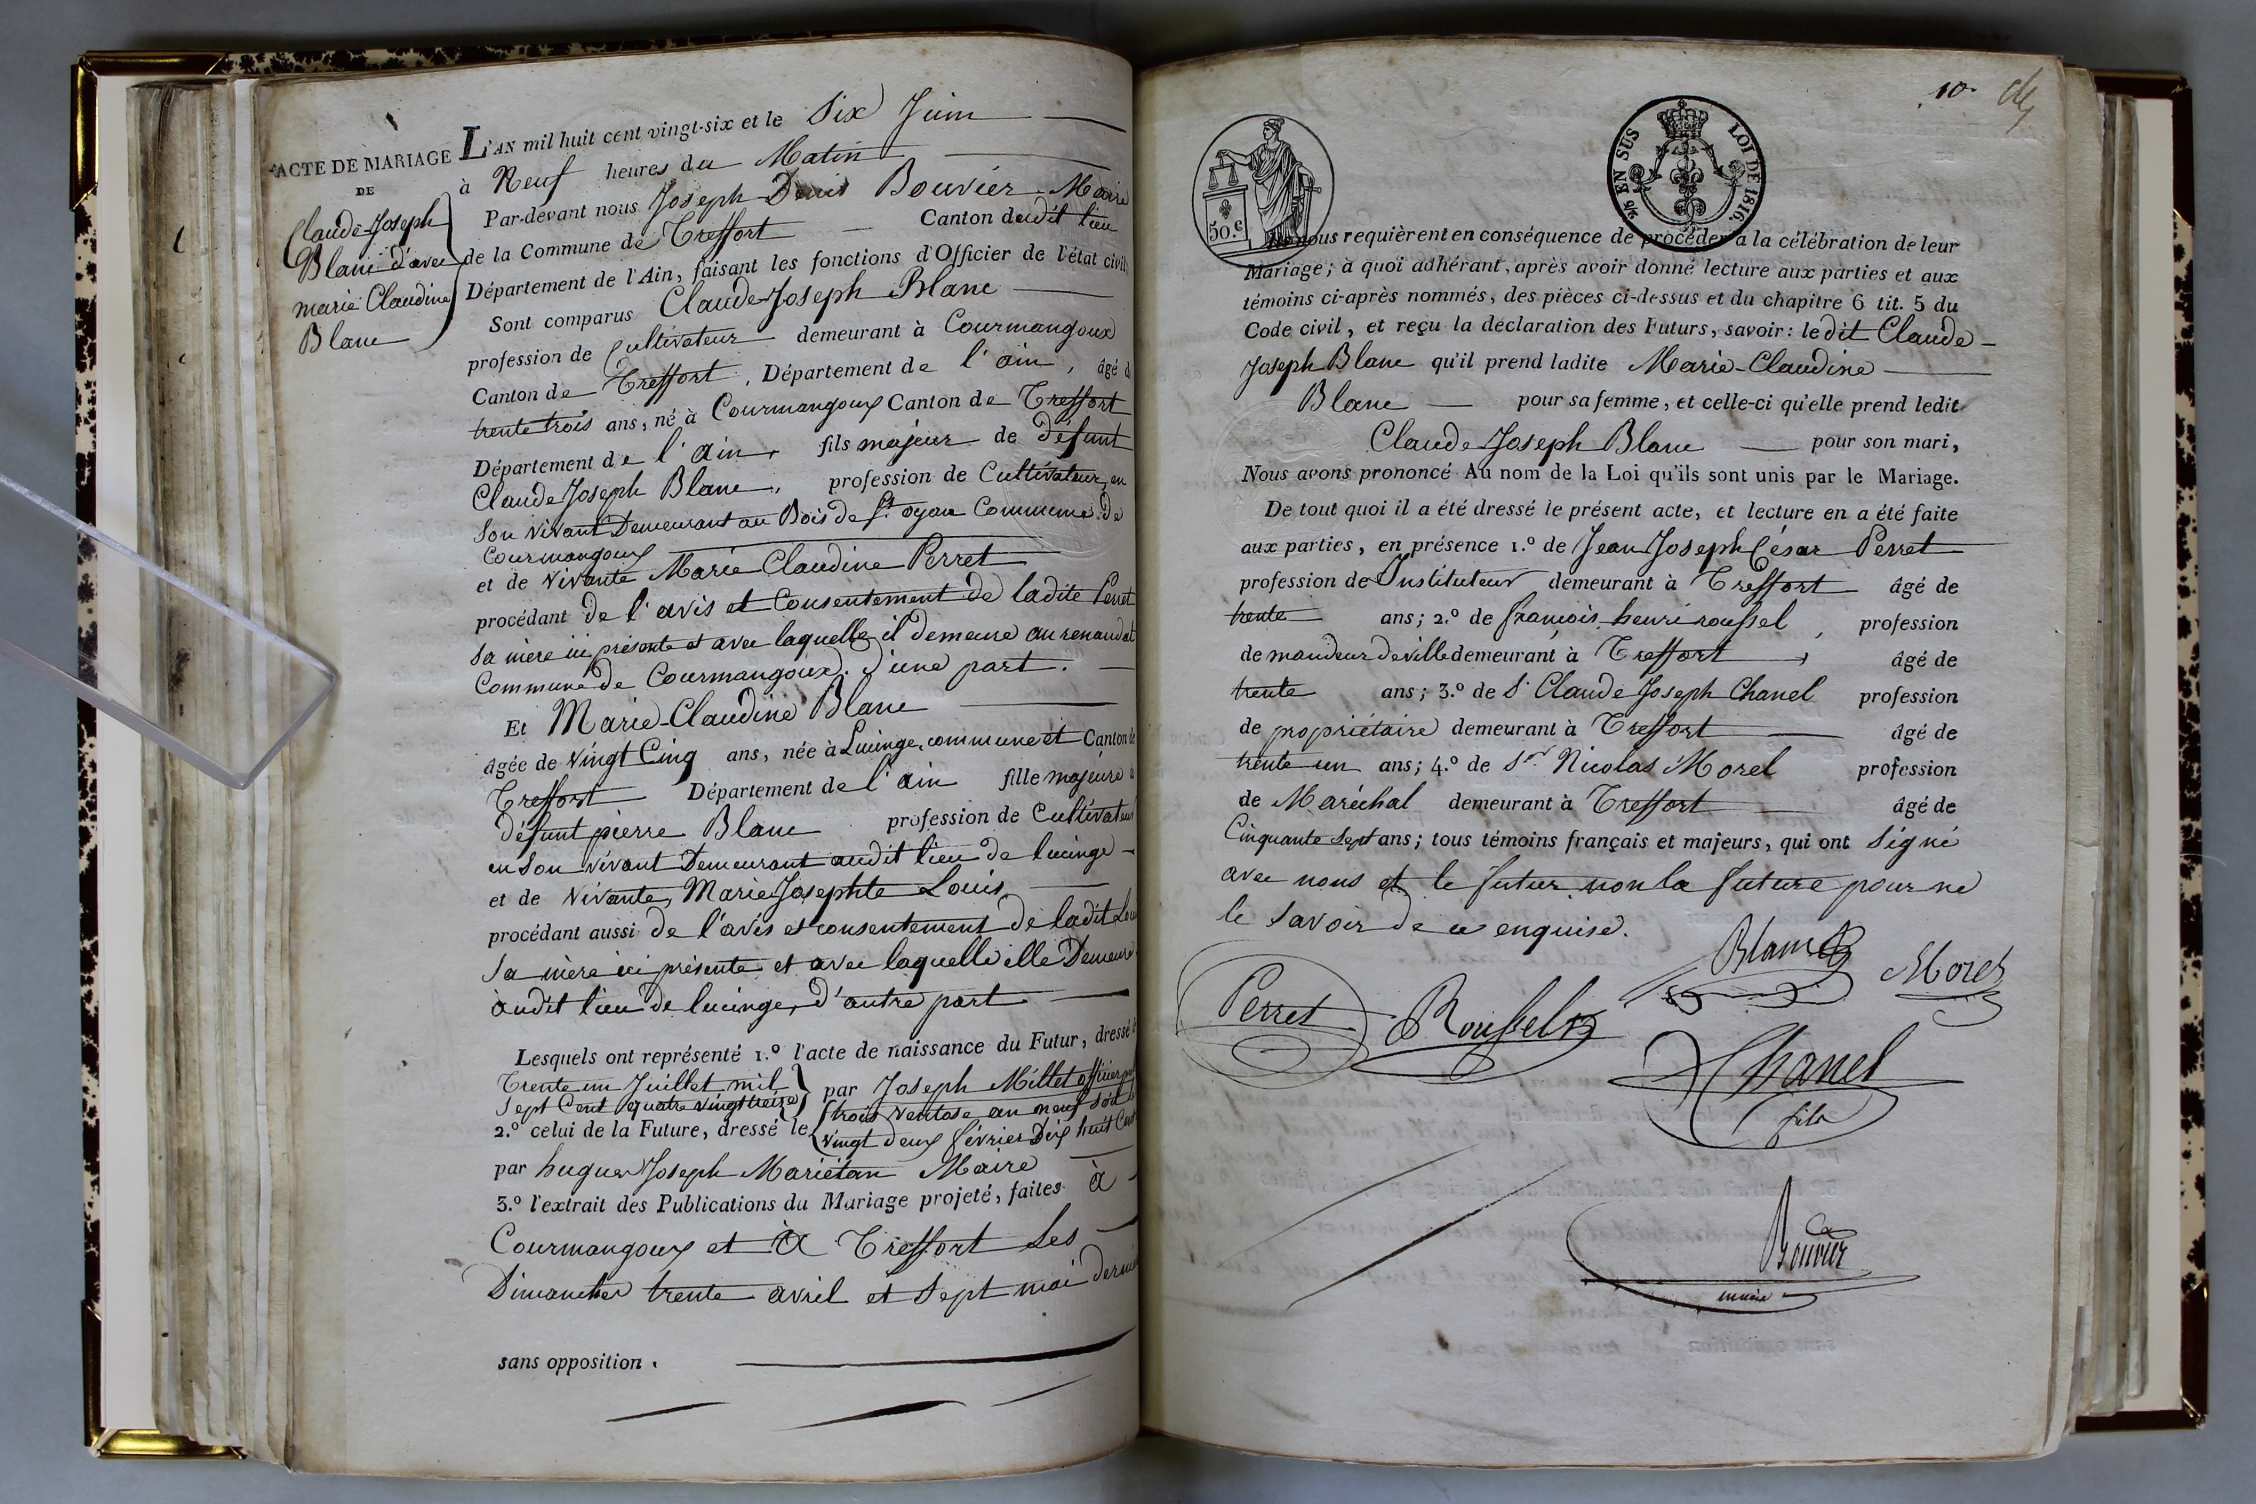 ACTE DE MARIAGE
DE
Claude-Joseph
Blanc d'avec
marie Claudine
Blanc
L'AN mil huit cent vingt-six et le Six Juin
à Neuf heures du Matin
Par-devant nous Joseph Denis Bouvier Maire
de la Commune de Treffort Canton dudit lieu
Département de l'Ain, faisant les fonctions d'Officier de l'état civil
Sont comparus Claude Joseph Blanc
profession de Cultivateur demeurant à Courmangoux
Canton de Treffort, Département de l'ain, âgé d
trente trois ans, né à Courmangoux Canton de Treffort
Département de l'ain, fils majeur de défunt
Claude Joseph Blanc, profession de Cultivateur, en
Son vivant Demeurant au Bois de St oyan Commune de
Courmangoux
et de vivante Marie Claudine Perret
procédant de l'avis et Consentement de ladite Perret
Sa mère ici présente et avec laquelle il demeure au renaudat
Commune de Courmangoux, d'une part.
Et Marie-Claudine Blanc
âgée de vingt Cinq ans, née à Lucinge, commune et Canton de
Treffort Département de l'ain fille majeure d
défunt pierre Blanc profession de Cultivateur
en Son vivant Demeurant audit lieu de lucinge
et de vivante, Marie Josephte Louis
procédant aussi de l'avis et consentement de ladit Lou
Sa mère ici présente et avec laquelle elle Demeure
audit lieu de lucinge, d'autre part
Lesquels ont représenté 1.º l'acte de naissance du Futur, dressé le
Trente un Juillet mil
Sept Cent quatre vingt treize par Joseph Millet officier pub
2.º celui de la Future, dressé le trois ventose an neuf soit le
vingt deux février Dix huit Cent
par hugues Joseph Mariétan Maire
3.º l'extrait des Publications du Mariage projeté, faites à
Courmangoux et à Treffort les
Dimanches trente avril et Sept mai dernie
sans opposition.
10
50.c
EN SUS
LOI DE 1816.
nous requièrent en conséquence de procéder à la célébration de leur
Mariage; à quoi adhérant, après avoir donné lecture aux parties et aux
témoins ci-après nommés, des pièces ci-dessus et du chapitre 6 tit. 5 du
Code civil, et reçu la déclaration des Futurs, savoir: le dit Claude
Joseph Blanc qu'il prend ladite Marie-Claudine
Blanc pour sa femme, et celle-ci qu'elle prend ledit
Claude Joseph Blanc pour son mari,
Nous avons prononcé Au nom de la Loi qu'ils sont unis par le Mariage.
De tout quoi il a été dressé le présent acte, et lecture en a été faite
aux parties, en présence 1.º de Jean Joseph César Perret
profession de Instituteur demeurant à Treffort âgé de
trente ans; 2.º de françois henri roussel, profession
de mandeur de ville demeurant à Treffort, âgé de
trente ans; 3.º de S. Claude Joseph Chanel profession
de propriétaire demeurant à Treffort âgé de
trente un ans; 4.º de Sr. Nicolas Morel profession
de Maréchal demeurant à Treffort âgé de
Cinquante Sept ans; tous témoins français et majeurs, qui ont Signé
avec nous et le futur non la future pour ne
le Savoir de ce enquise.
Blanc Morel
Perret Roussel
Chanel
fils
Bouvier
maire